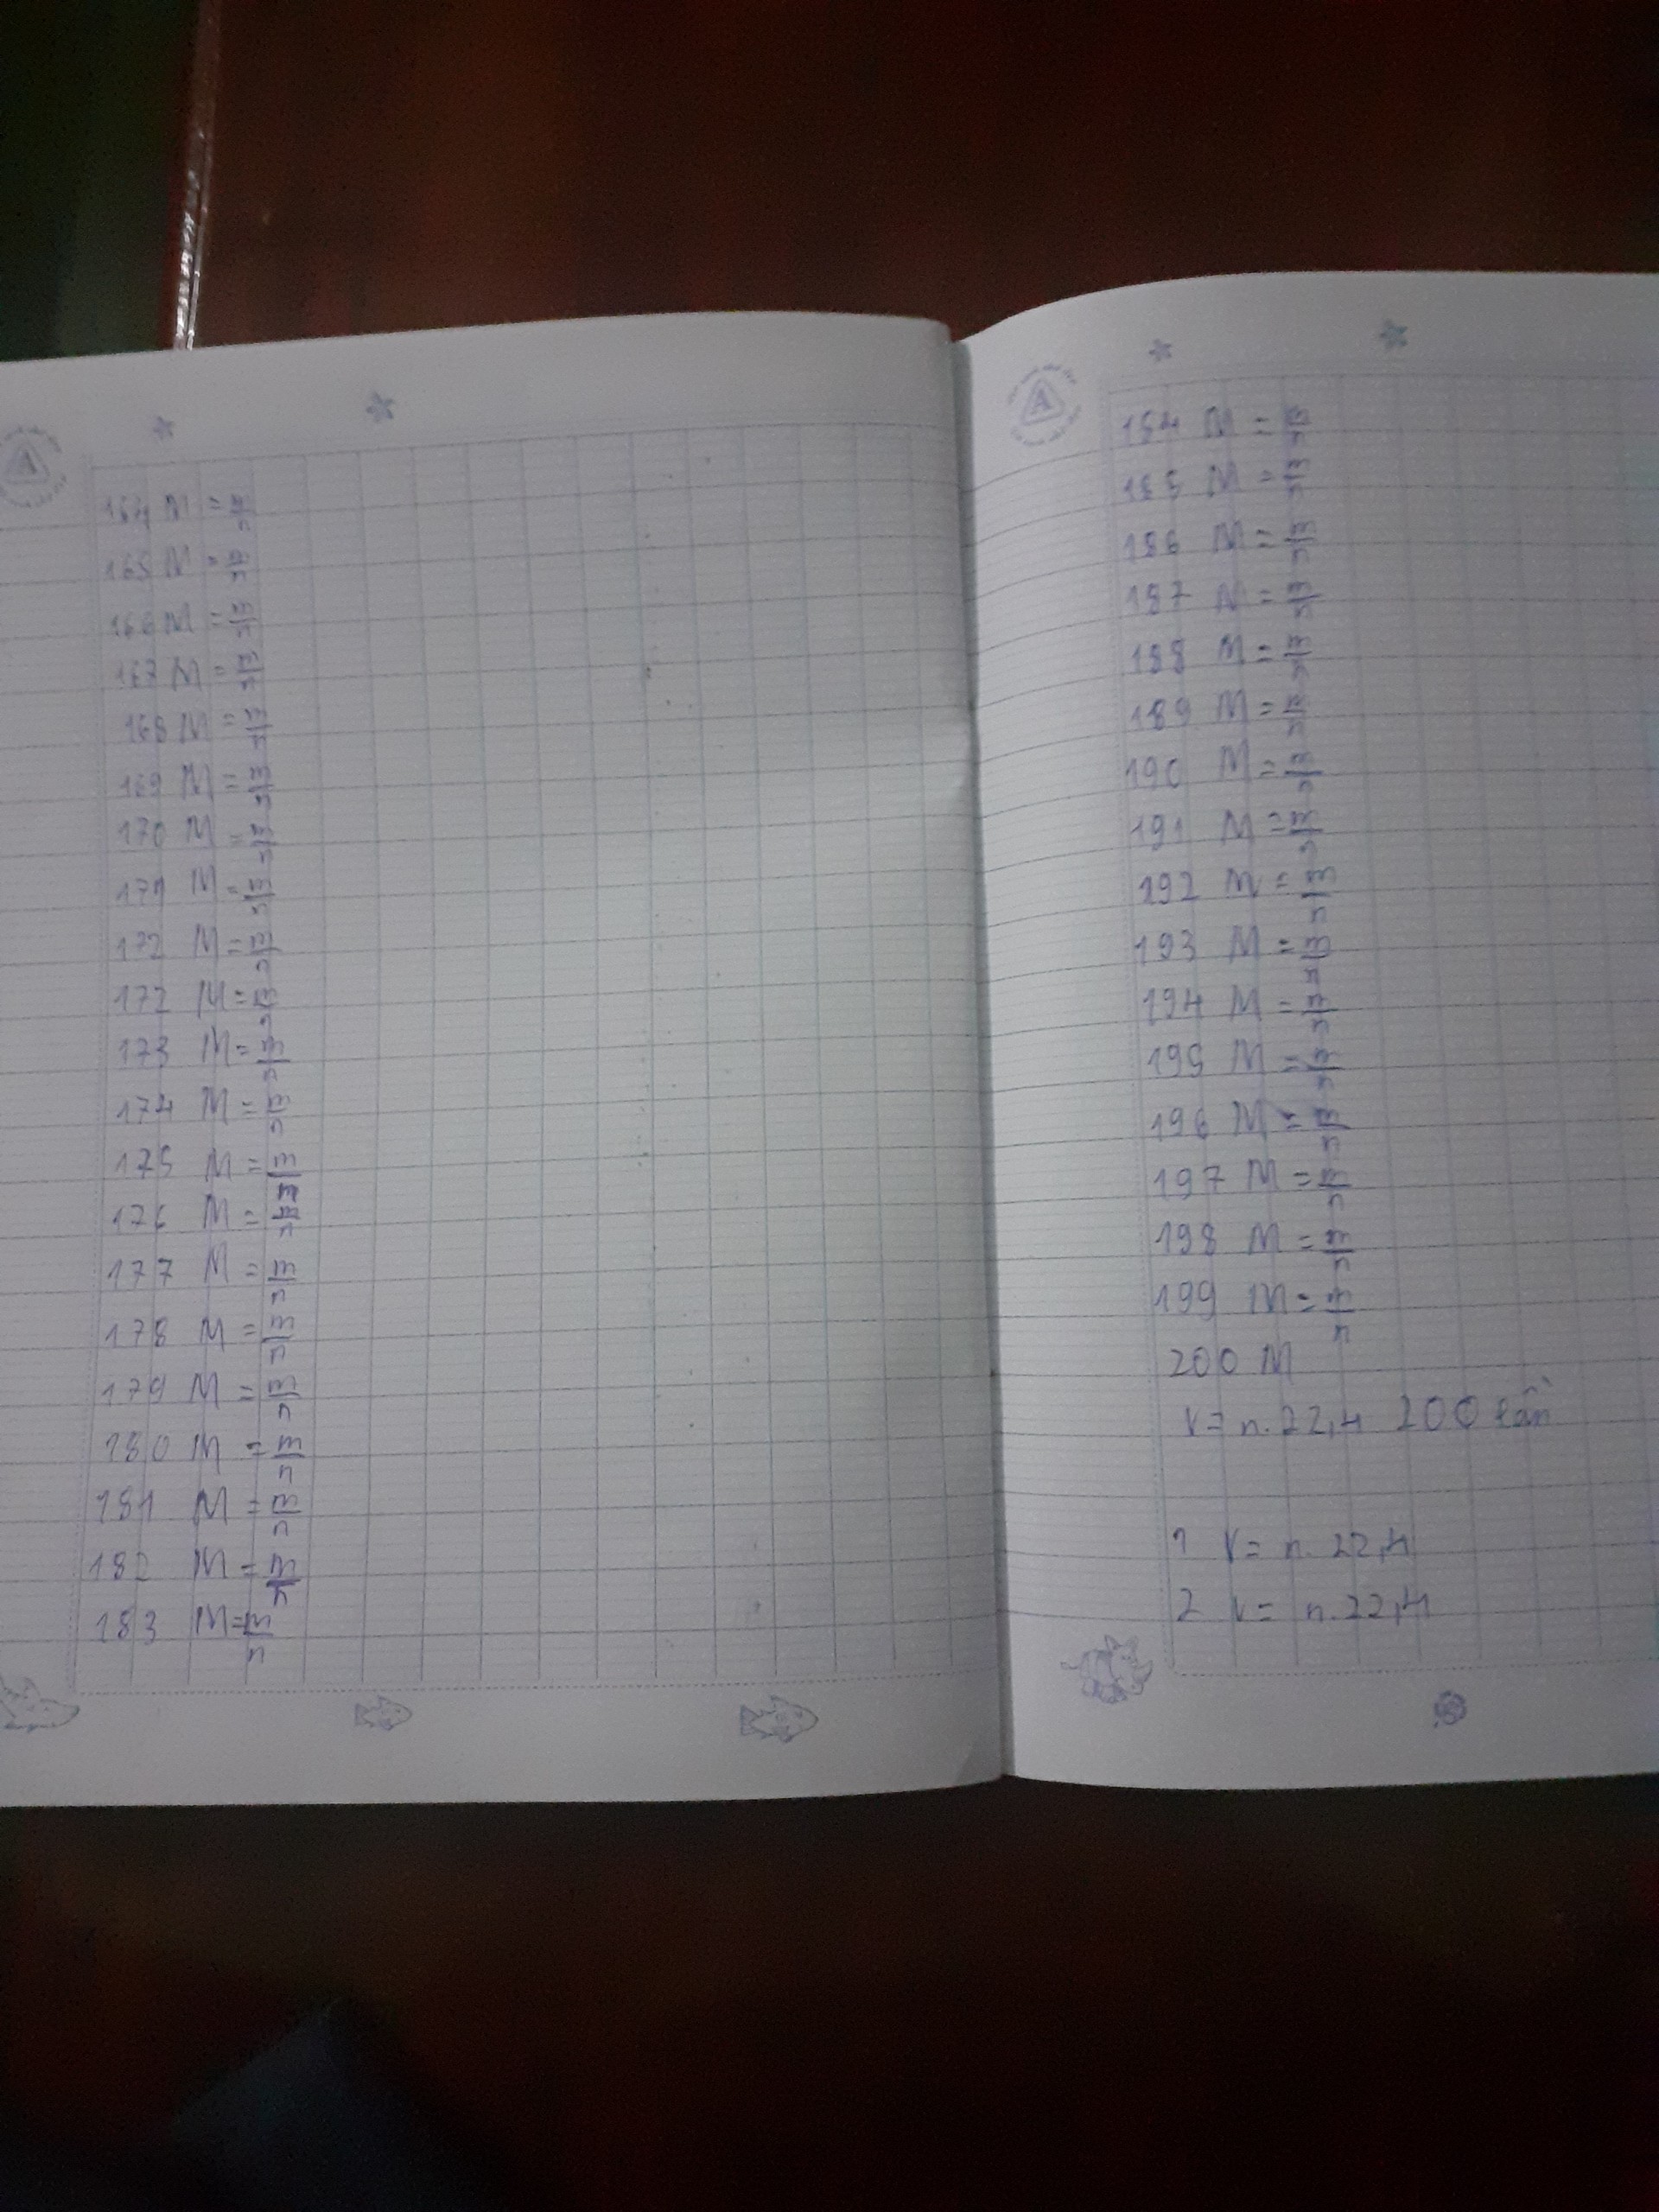 164 M = m/n
165 M = m/n
166 M = m/n
167 M = m/n
168 M = m/n
169 M = m/n
170 M = m/n
171 M = m/n
172 M = m/n
172 M = m/n
173 M = m/n
174 M = m/n
175 M = m/n
176 M = m/n
177 M = m/n
178 M = m/n
179 M = m/n
180 M = m/n
181 M = m/n
182 M = m/n
183 M = m/n
A
184 M = m/n
185 M = m/n
186 M = m/n
187 M = m/n
188 M = m/n
189 M = m/n
190 M = m/n
191 M = m/n
192 M = m/n
193 M = m/n
194 M = m/n
195 M = m/n
196 M = m/n
197 M = m/n
198 M = m/n
199 M = m/n
200 M
V = n.22,4 200 lần
1 V = n.22,4
2 V = n.22,4